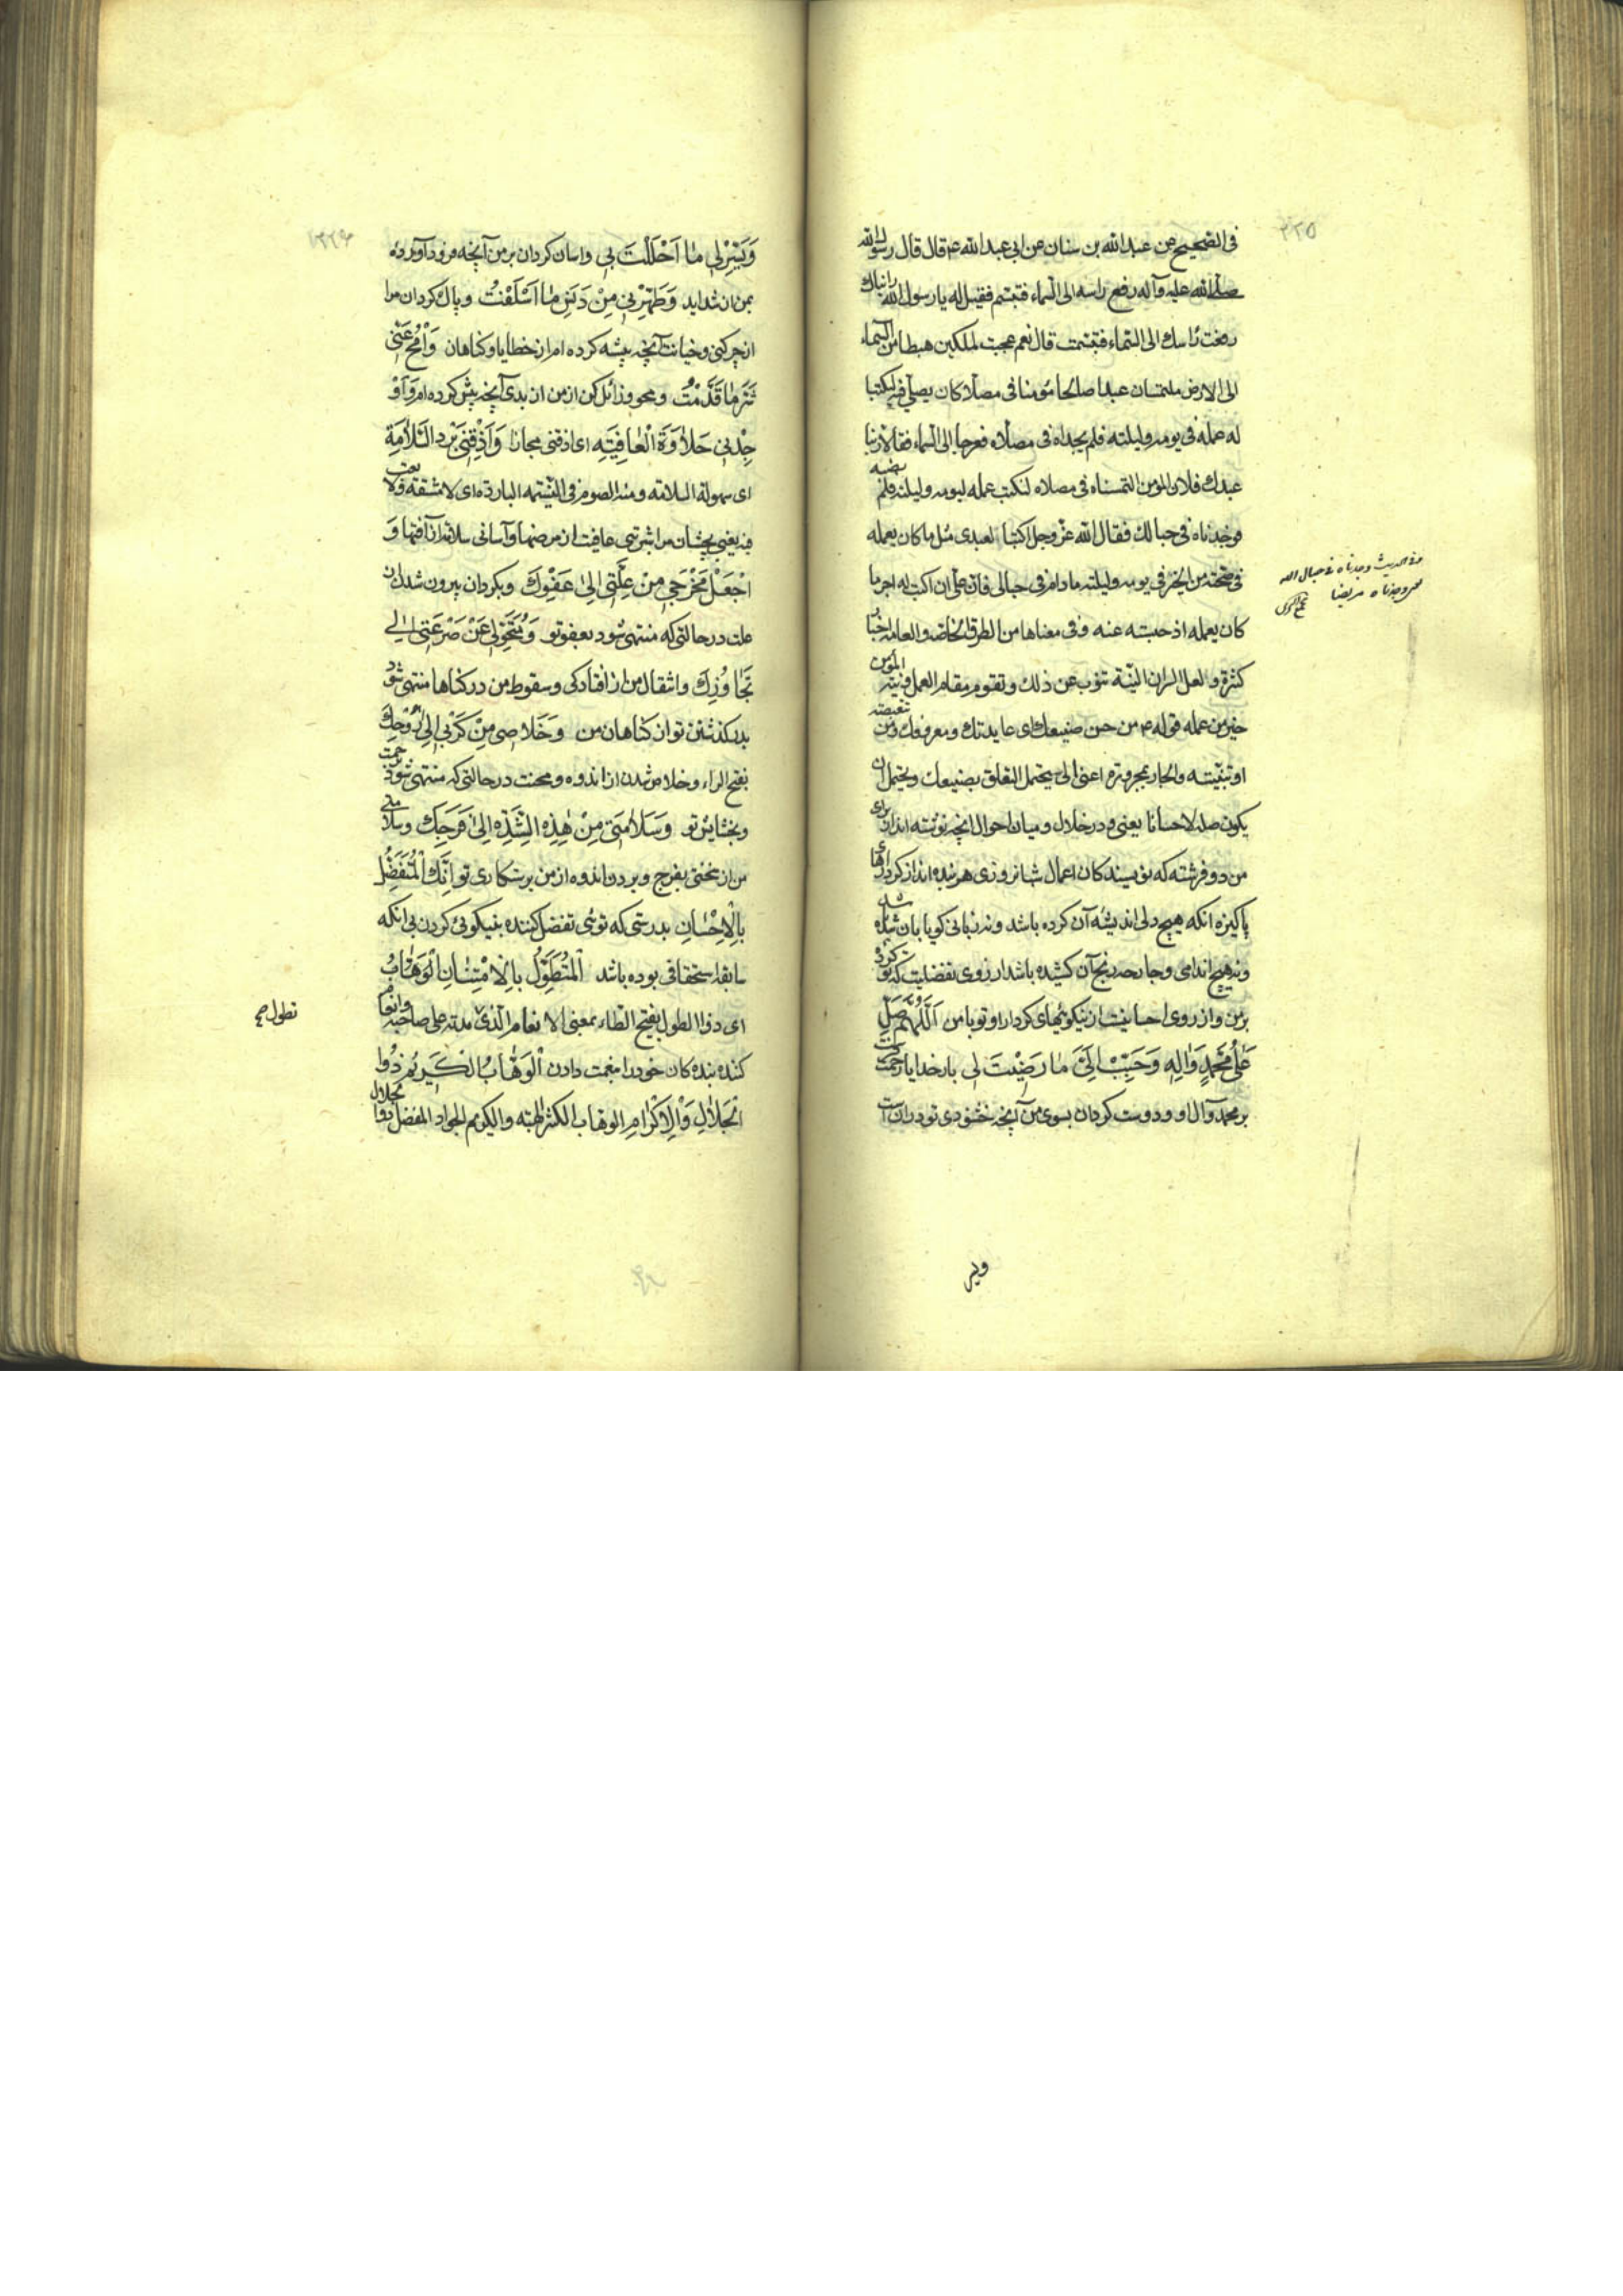 ۳۲۵
فی الصحیح عن عبدالله بن سنان عن ابی عبدالله ع قال قال رسول الله
صلی الله علیه وآله رفع راسه الی السماء فتبسم فقیل له یا رسول الله رایناک
رفعت راسک الی السماء فتبسمت قال نعم عجبت لملکین هبطا من السماء
الی الارض ملتمسان عبدا صالحا مؤمنا فی مصلا کان یصلی فیه لیکتبا
له عمله فی یومه ولیلته فلم یجداه فی مصلاه فعرجا الی السماء فقالا ربنا
عبدک فلان المؤمن التمسناه فی مصلاه لنکتب عمله لیومه ولیلته فلم نصبه
فوجدناه فی حبالک فقال الله عز وجل اکتبا لعبدی مثل ما کان یعمله
فی صحته من الخیر فی یومه ولیلته مادام فی حبالی فان علی ان اکتب له اجر ما
کان یعمله اذ حبسته عنه وفی معناها من الطرق الخاصه والعامه اخبار
کثیرة ولعل السر ان النیّة تنوب عن ذلک وتقوم مقام العمل ونیة المؤمن
خیر من عمله قوله ع من حسن صنیعک ای عایدتک ومعروفک ومن تبعیضیه
او تبیینیه والجار بمجروره اعنی الیّ یحتمل التعلق بصنیعک ویحتمل ان
یکون صلة لاحسانا یعنی ودر خلال ومیان احوال انچه نوشته اند از برای
من دو فرشته که نویسندکان اعمال شبانروزی هر بنده اند از کردارهای
پاکیزه انکه هیچ دلی اندیشه آن کرده باشد ونه زبانی کویا بان شده
ونه هیچ اندامی وجارحه رنج آن کشیده باشد از روی تفضلیت که تو کردی
بر من واز روی احسانیت از نیکوئیهای کردار او تو با من اَللّٰهُمَّ صَلِّ
عَلیٰ مُحَمَّدٍ وَاٰلِهِ وَحَبِّبْ اِلَیَّ مٰا رَضٖیْتَ لٖی بار خدایا رحمت کن
بر محمد وآل او ودوست کردان بسوی من آنچه خشنودی تو در ان است
وفی الحدیث وجدناه فی حبال الله
ووجدناه مریضا
ویسر
وَیَسِّرْ لٖی مٰا اَحْلَلْتَ بٖی واسان کردان بر من آنچه فرود آورده
بمن از شداید وَطَهِّرْنٖی مِنْ دَنَسِ مٰا اَسْلَفْتُ وپاک کردان مرا
از چرکنی وخیانت آنچه پیشه کرده ام از خطایا وکناهان وَاْمْحُ عَنّٖی
شَرَّ مٰا قَدَّمْتُ ومحو وزائل کن از من از بدی آنچه پیش کرده ام وَاَوْ
جِدْنٖی حَلاٰوَةَ الْعٰافِیَةِ ای اذقنی مجازا وَاَذِقْنٖی بَرْدَ السَّلاٰمَةِ
ای سهولة السلامه ومنه الصوم فی الشتاء الغنیمه الباردة ای لا مشقة ولا تعب
فیه یعنی بچشان مرا شیرینی عافیت از مرضها وآسانی سلامة از آفتها وَ
اجْعَلْ مَخْرَجٖی مِنْ عِلَّتٖی اِلیٰ عَفْوِکَ وبکردان بیرون شدن از
علت در حالتی که منتهی شود بعفو تو وَمُتَحَوَّلٖی عَنْ صَرْعَتٖی اِلیٰ
تَجٰاوُزِکَ وانتقال من از افتادکی وسقوط من در کناها منتهی شود
بدر کذشتن تو از کناهان من وَخَلاٰصٖی مِنْ کَرْبٖی اِلیٰ رَوْحِکَ
بفتح الراء وخلاص شدن از اندوه ومحنت در حالتی که منتهی شود برحمت
وبخشایش تو وَسَلاٰمَتٖی مِنْ هٰذِهِ الشِّدَّةِ اِلیٰ فَرَجِکَ وسلامتی
من از سختی بفرج وبردن اندوه از من برستکاری تو اِنَّکَ الْمُتَفَضِّلُ
بِالْاِحْسٰانِ بدرستی که توئی تفضل کننده بنیکوئی کردن بی انکه
سابقه استحقاقی بوده باشد اَلْمُتَطَوِّلُ بِالْاِمْتِنٰانِ الْوَهّٰابُ
ای ذوا الطول بفتح الطاء بمعنی الانعام الذی مدته علی صاحبه وانعام
کننده بنده کان خود را بنعمت دادن اَلْوَهّٰابُ الْکَرٖیْمُ ذُوا
الْجَلاٰلِ وَالْاِکْرٰامِ الوهاب الکثیر الهبة والکریم الجواد المفضل ذوا الجلال
تطول صح